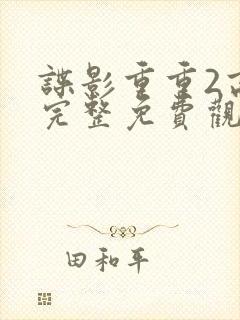 諜影重重2
完整免費觀
田和平